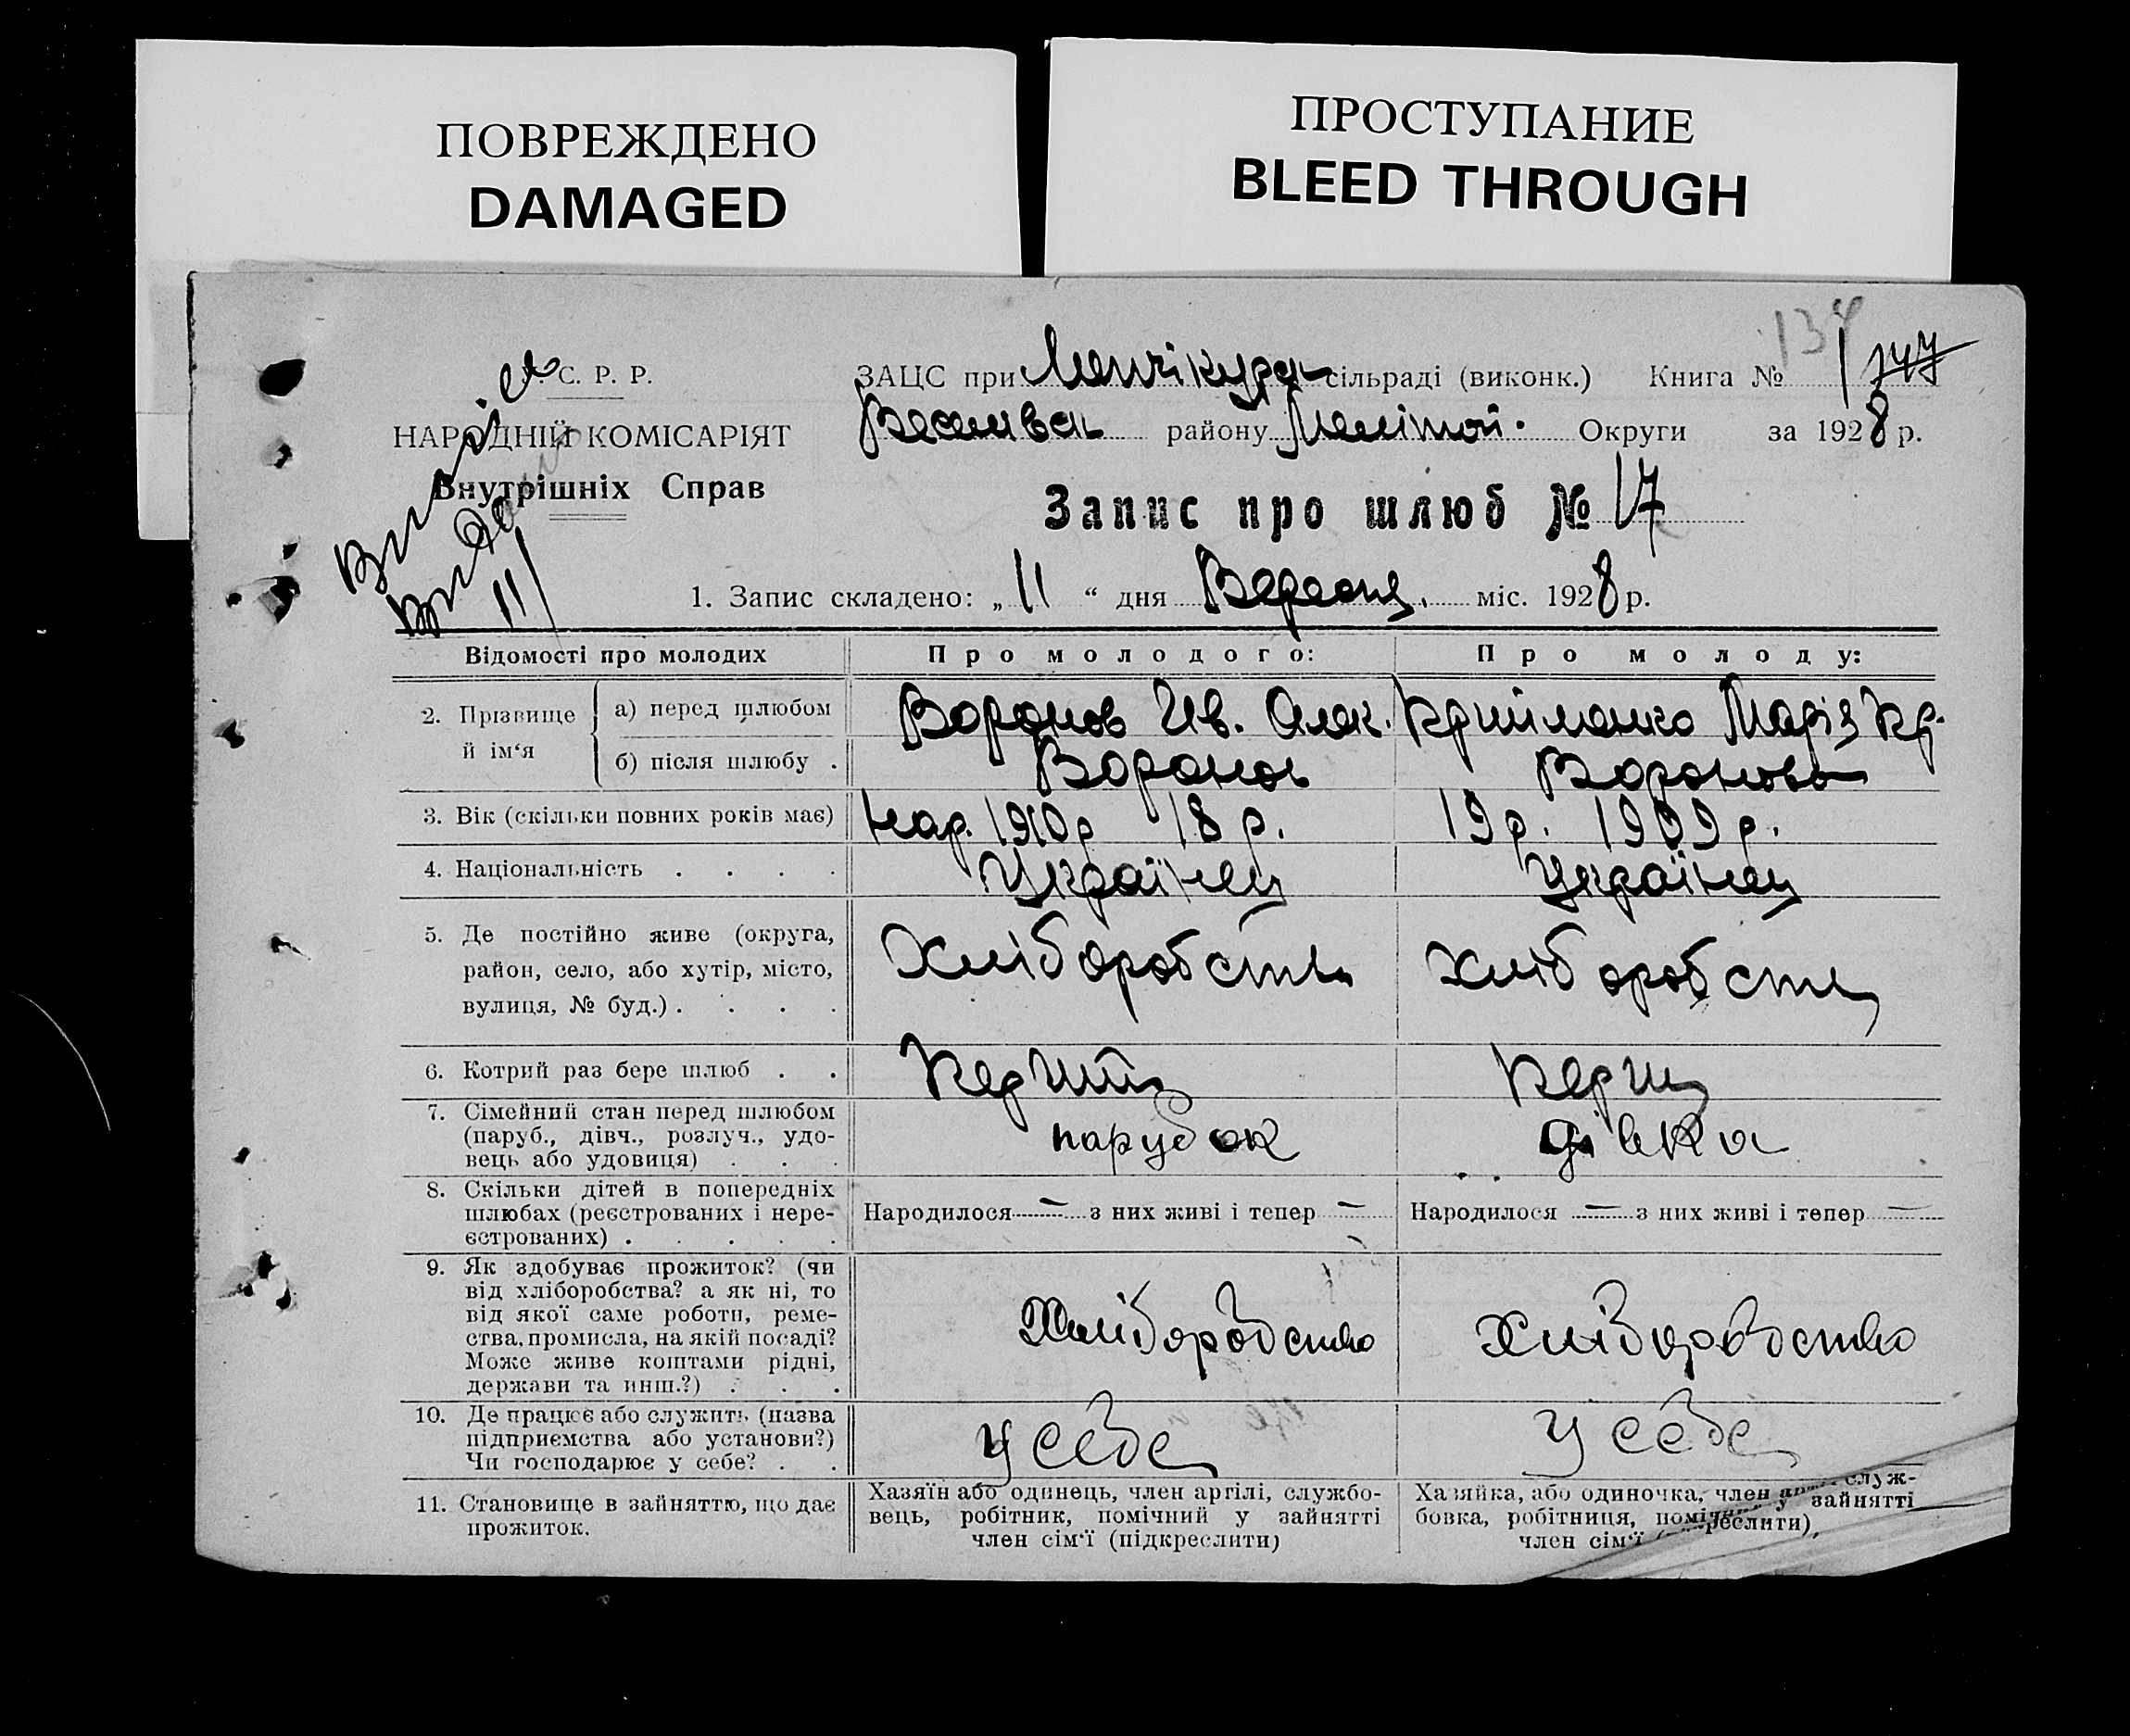 ПОВРЕЖДЕНО
DAMAGED
ПРОСТУПАНИЕ
BLEED THROUGH
С. Р. Р.
НАРОДНІЙ КОМІСАРІЯТ
Внутрішніх Справ
11
ЗАЦС при Менчікура сільраді (виконк.) Книга № 1
Веселівск району Мелітоп. Округи за 1928 р.
Запис про шлюб № 17
1. Запис складено: „ 11 “ дня Вересня міс. 1928 р.
Відомості про молодих Про молодого: Про молоду:
2. Прізвище й ім‘я
а) перед шлюбом Воронов Ив. Алек. Марія Кр.
б) після шлюбу . Воронов Воронова
3. Вік (скільки повних років має) нар. 1910 р 18 р. 19 р. 1909 р.
4. Національність . . . . Українец Українец
5. Де постійно живе (округа,
район, село, або хутір, місто,
вулиця, № буд.) . . . .
Хліборобств Хліборобств
6. Котрий раз бере шлюб . .
7. Сімейний стан перед шлюбом
(паруб., дівч., розлуч., удо-
вець або удовиця) . . .
парубок дівка
8. Скільки дітей в попередніх
шлюбах (реєстрованих і нере-
єстрованих) . . . . .
Народилося — з них живі і тепер — Народилося — з них живі і тепер —
9. Як здобуває прожиток? (чи
від хліборобства? а як ні, то
від якої саме роботи, реме-
ства, промисла, на якій посаді?
Може живе коштами рідні,
держави та инш.?) . . .
Хліборобство Хліборобство
10. Де працює або служить (назва
підприємства або установи?)
Чи господарює у себе? . .
У себе У себе
11. Становище в зайняттю, що дає
прожиток.
Хазяїн або одинець, член аргілі, службо-
вець, робітник, помічний у зайнятті
член сім‘ї (підкреслити)
Хазяйка, або одиночка, член служ-
бовка, робітниця, у зайнятті
член сім‘ї